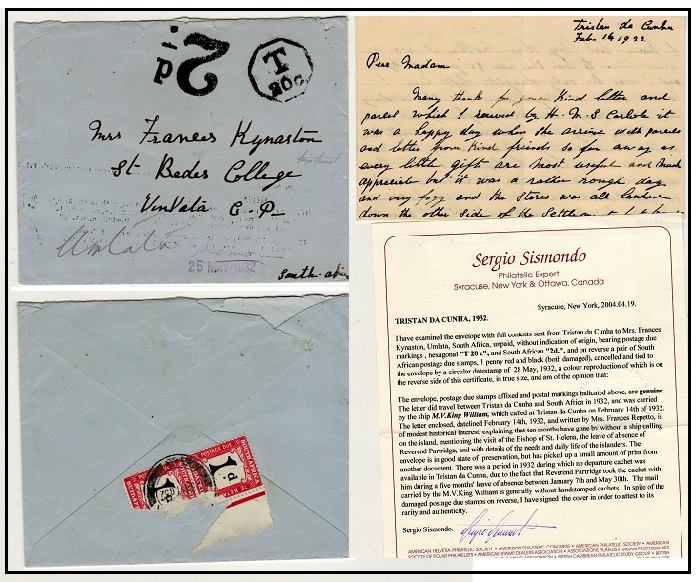 2
d
T
20c
Mrs Frances Kynaston
St Bedes College
UmVata C.P.
Umtata
25 MAY 1932
South
Tristan da Cunha
Feb. 14, 1932
Dear Madam
Many thank for your Kind letter and
parcel which I received by H.M.S Carlisle it
was a happy day when she arrive with parcels
and letter from Kind friends so far away as
every little gift are most useful and much
appreciate but it was a rather rough day
and very fogy and the stores was all landed
down the other side of the Settlem
POSTAGE DUE
1d
1d
Sergio Sismondo
Philatelic Expert
Syracuse, New York & Ottawa, Canada
Syracuse, New York, 2004.04.19.
TRISTAN DA CUNHA, 1932.
I have examined the envelope with full contents sent from Tristan da Cunha to Mrs. Frances
Kynaston, Umtata, South Africa, unpaid, without indication of origin, bearing postage due
markings, hexagonal "T 20 c", and South African "2d.", and on reverse a pair of South
African postage due stamps, 1 penny red and black (both damaged), cancelled and tied to
the envelope by a circular datestamp of 28 May, 1932, a colour reproduction of which is on
the reverse side of this certificate, in true size, and am of the opinion that:
The envelope, postage due stamps affixed and postal markings indicated above, are genuine.
The letter did travel between Tristan da Cunha and South Africa in 1932, and was carried
by the ship M.V.King William, which called at Tristan da Cunha on February 14th of 1932.
The letter enclosed, datelined February 14th, 1932, and written by Mrs. Frances Repetto, is
of modest historical interest explaining that ten months have gone by without a ship calling
on the island, mentioning the visit of the Bishop of St. Helena, the leave of absence of
Reverend Partridge, and with details of the needs and daily life of the islanders. The
envelope is in good state of preservation, but has picked up a small amount of print from
another document. There was a period in 1932 during which no departure cachet was
available in Tristan da Cunha, due to the fact that Reverend Partridge took the cachet with
him during a five months' leave of absence between January 7th and May 30th. The mail
carried by the M.V.King William is generally without handstamped cachets. In spite of the
damaged postage due stamps on reverse, I have signed the cover in order to attest to its
rarity and authenticity.
Sergio Sismondo.
AMERICAN HELVETIA PHILATELIC SOCIETY • AMERICAN PHILATELIC CONGRESS • AMERICAN PHILATELIC SOCIETY • AMERICAN
SOCIETY OF POLAR PHILATELISTS • AMERICAN STAMP DEALERS ASSOCIATION • BRITISH CARIBBEAN PHILATELIC STUDY GROUP • BRITISH